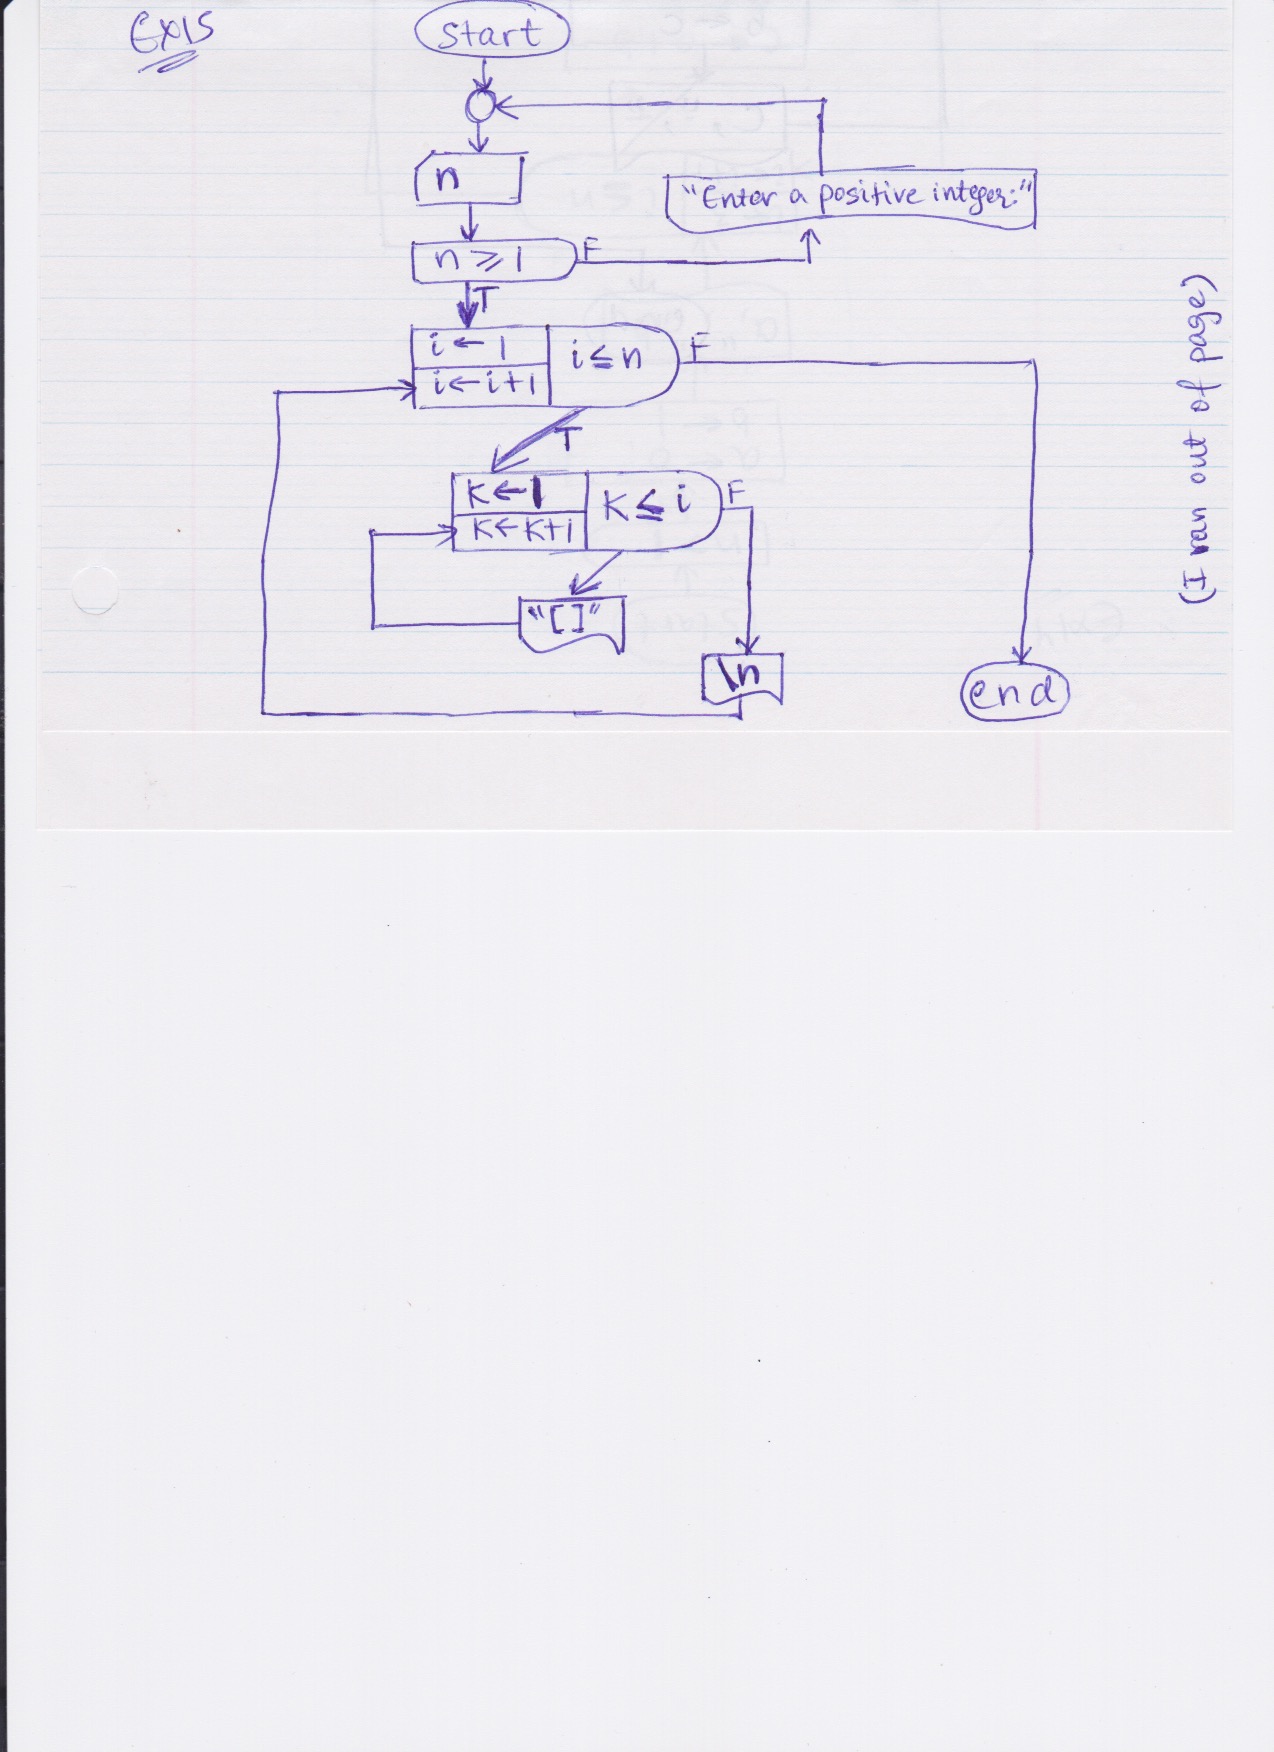 Ex15
Start
n
"Enter a positive integer:"
n ⩾ 1
F
T
i ← 1
i ← i+1
i ≤ n
F
T
K ← 1
K ← K+i
K ≤ i
F
"[ ]"
\n
end
(I ran out of page)